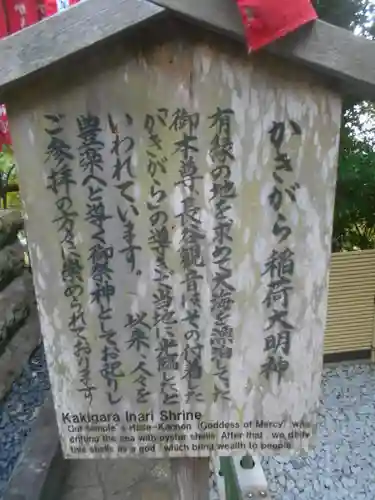 かきがら稲荷大明神
有縁の地を求めて大海を漂泊してた
御本尊長谷観音はその付着
「かきがら」の導きで当地に来臨したと
いわれています。以来、人々を
豊楽へと導く御祭神としてお祀りし
ご参拝の方々に崇められております
Kakigara Inari Shrine
Our temple's Hase-Kannon (Goddess of Mercy) was
drifting the sea with oyster shells. After that, we deify
this shells as a god which bring good luck to people.